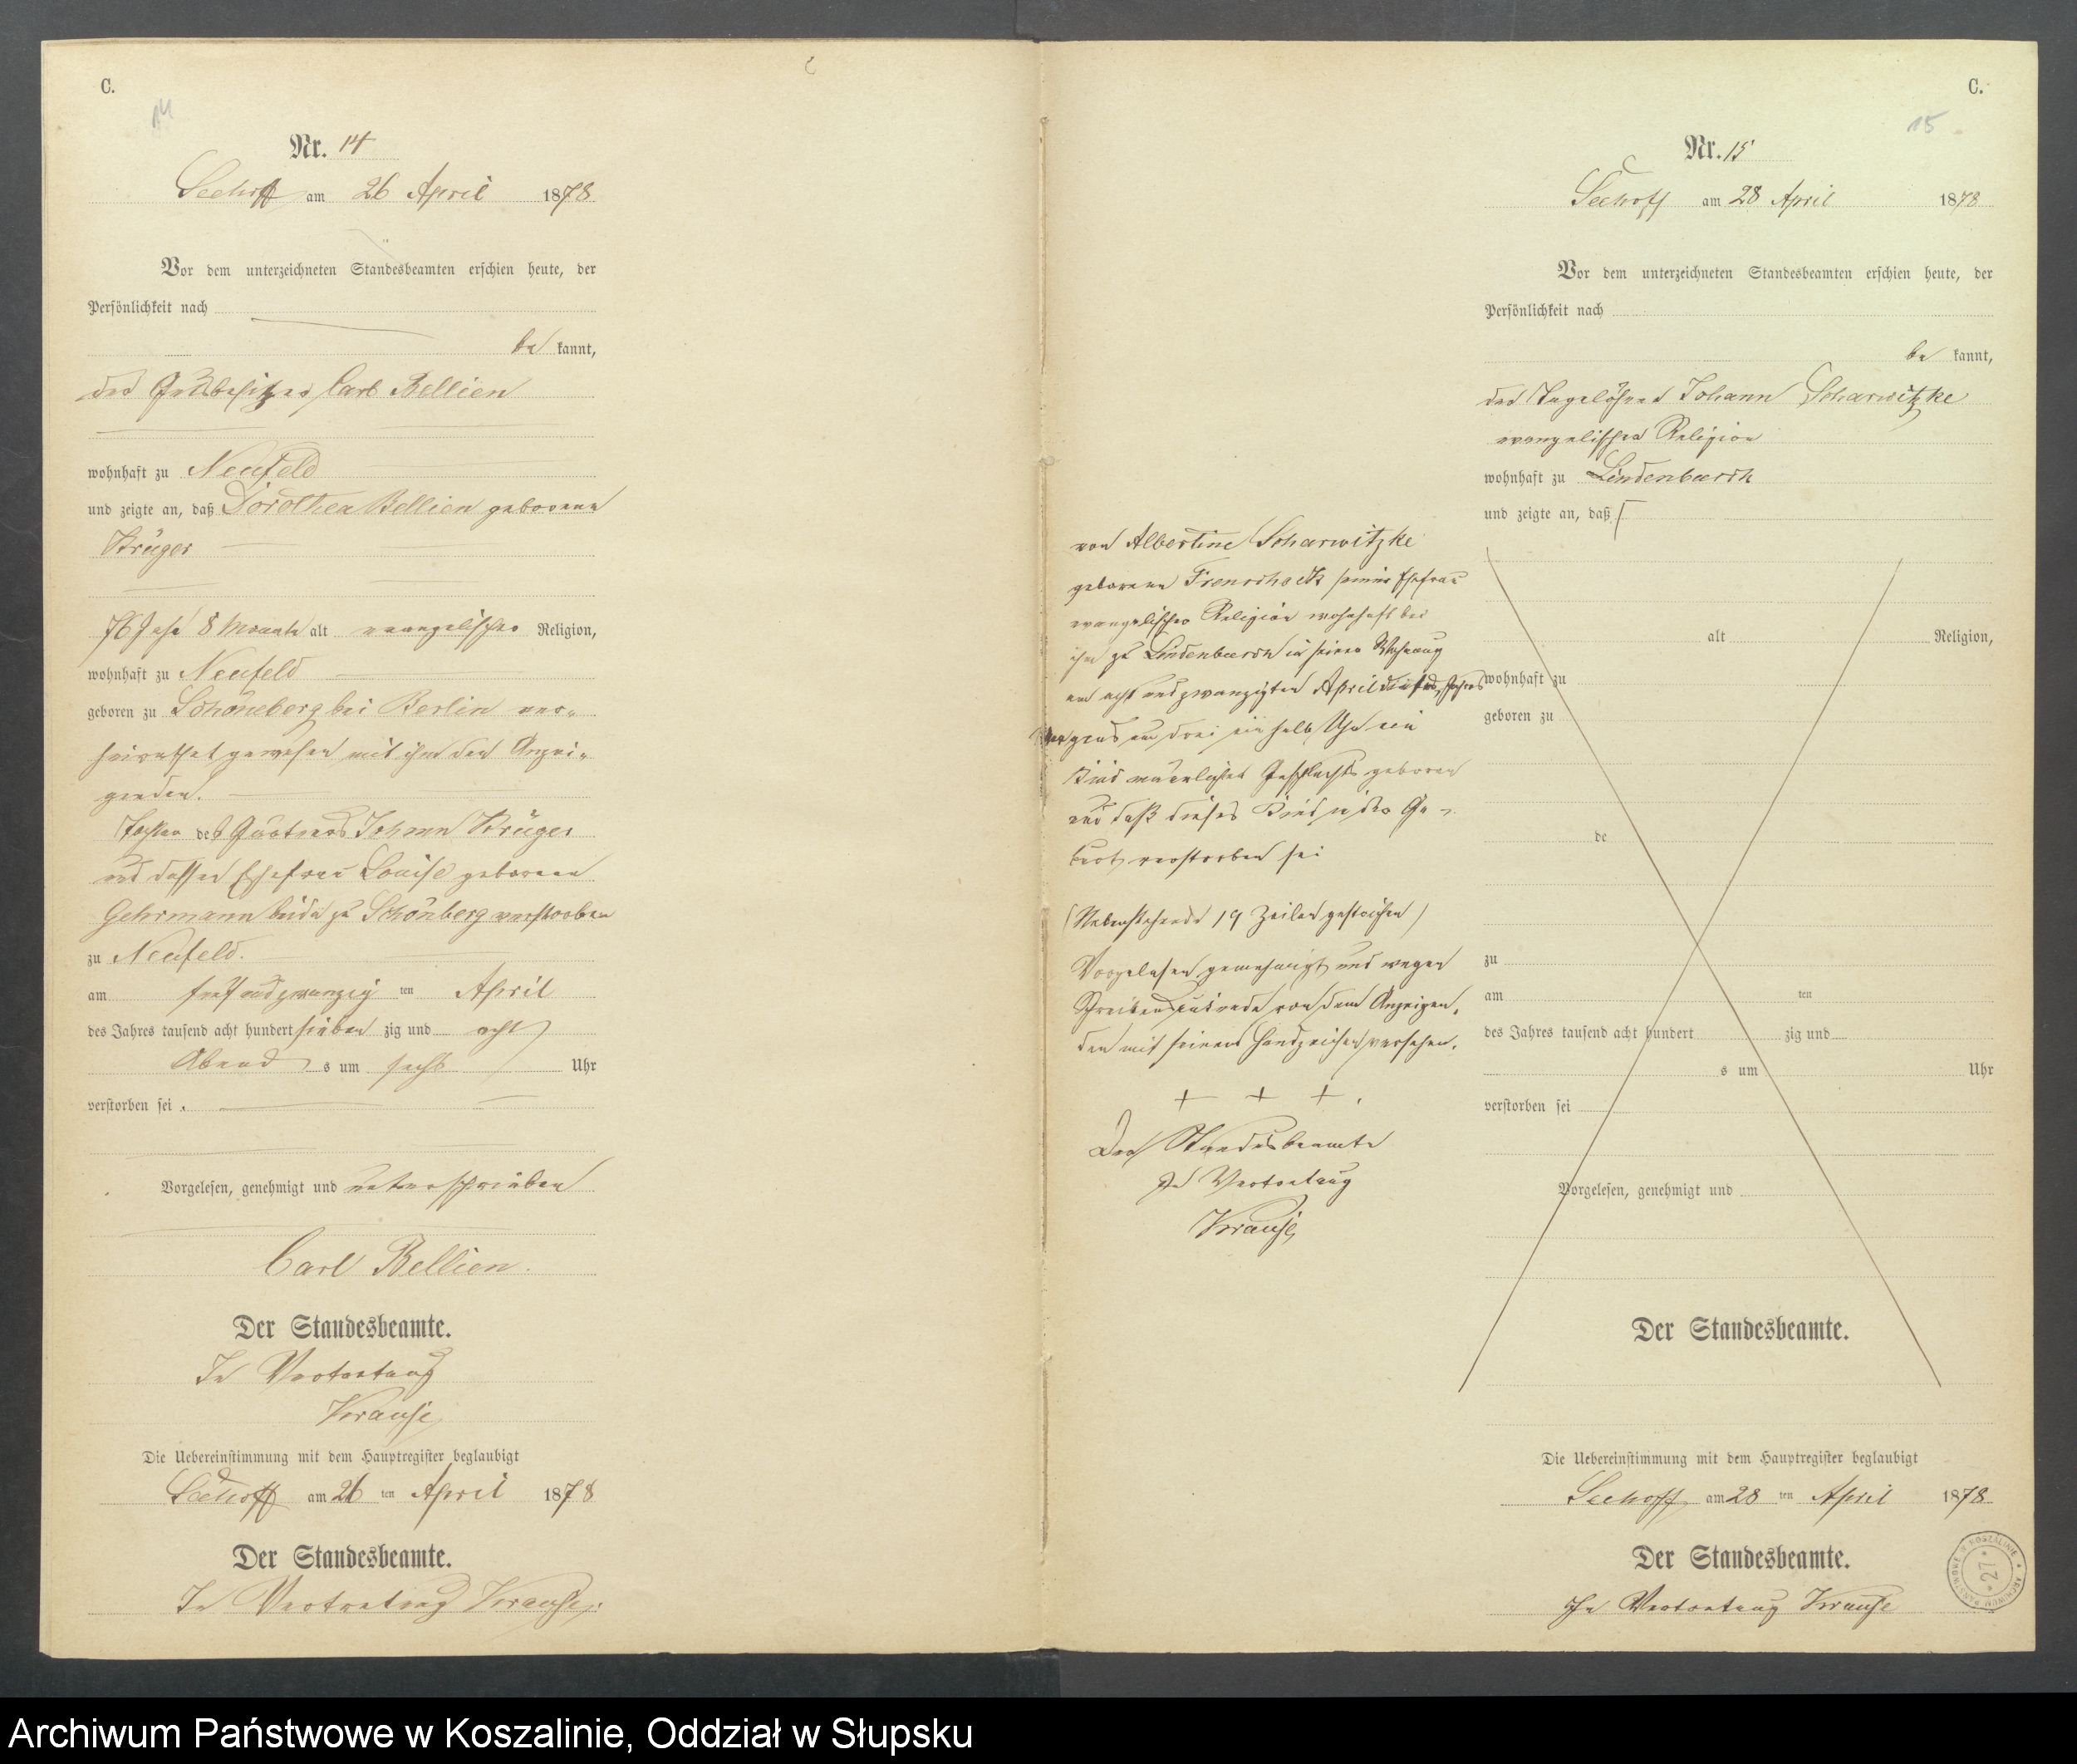 C.
14
Nr. 14
Seehoff am 26 April 1878
Vor dem unterzeichneten Standesbeamten erschien heute, der
Persönlichkeit nach
be kannt,
der Carl Bellien
wohnhaft zu Neufeld
und zeigte an, daß Dorothea Bellien geborene
Krüger
76 Jahr 8 Monate alt evangelischer Religion,
wohnhaft zu Neufeld
geboren zu Schöneberg bei Berlin ver-
heirathet gewesen mit ihm dem Anzei-
genden.
Tochter des Johann Krüger
und dessen Ehefrau Louise geborene
Gehrmann beide zu Schönberg verstorben
zu Neufeld.
am fünf und zwanzig ten April
des Jahres tausend acht hundert sieben zig und acht
Abend s um sechs Uhr
verstorben sei.
Vorgelesen, genehmigt und unterschrieben
Carl Bellien.
Der Standesbeamte.
In Vertretung
Krause
Die Uebereinstimmung mit dem Hauptregister beglaubigt
Seehoff am 26 ten April 1878
Der Standesbeamte.
In Vertretung Krause.
C.
15
Nr. 15
Seehoff am 28 April 1878
Vor dem unterzeichneten Standesbeamten erschien heute, der
Persönlichkeit nach
be kannt,
der Tagelöhner Johann Scharwitzke
evangelischer Religion
wohnhaft zu
und zeigte an, daß
von Albertine Scharwitzke
geborene seiner Ehefrau
evangelischer Religion wohnhaft bei
ihm zu in seiner Wohnung
am acht und zwanzigten April dieses Jahres
Morgens um drei ein halb Uhr ein
Kind männlichen Geschlechts geboren
und daß dieses Kind in der Ge-
burt verstorben sei
(Nebenstehende 19 Zeilen gestrichen)
Vorgelesen genehmigt und wegen
Schreibens von dem Anzeigen-
den mit seinem Handzeichen versehen.
+ + +.
Der Standesbeamte
In Vertretung
Krause
alt Religion,
wohnhaft zu
geboren zu
de
zu
am ten
des Jahres tausend acht hundert zig und
s um Uhr
verstorben sei
Vorgelesen, genehmigt und
Der Standesbeamte.
Die Uebereinstimmung mit dem Hauptregister beglaubigt
Seehoff am 28 ten April 1878
Der Standesbeamte.
In Vertretung Krause
ARCHIWUM PAŃSTWOWE W KOSZALINIE * 27 *
Archiwum Państwowe w Koszalinie, Oddział w Słupsku